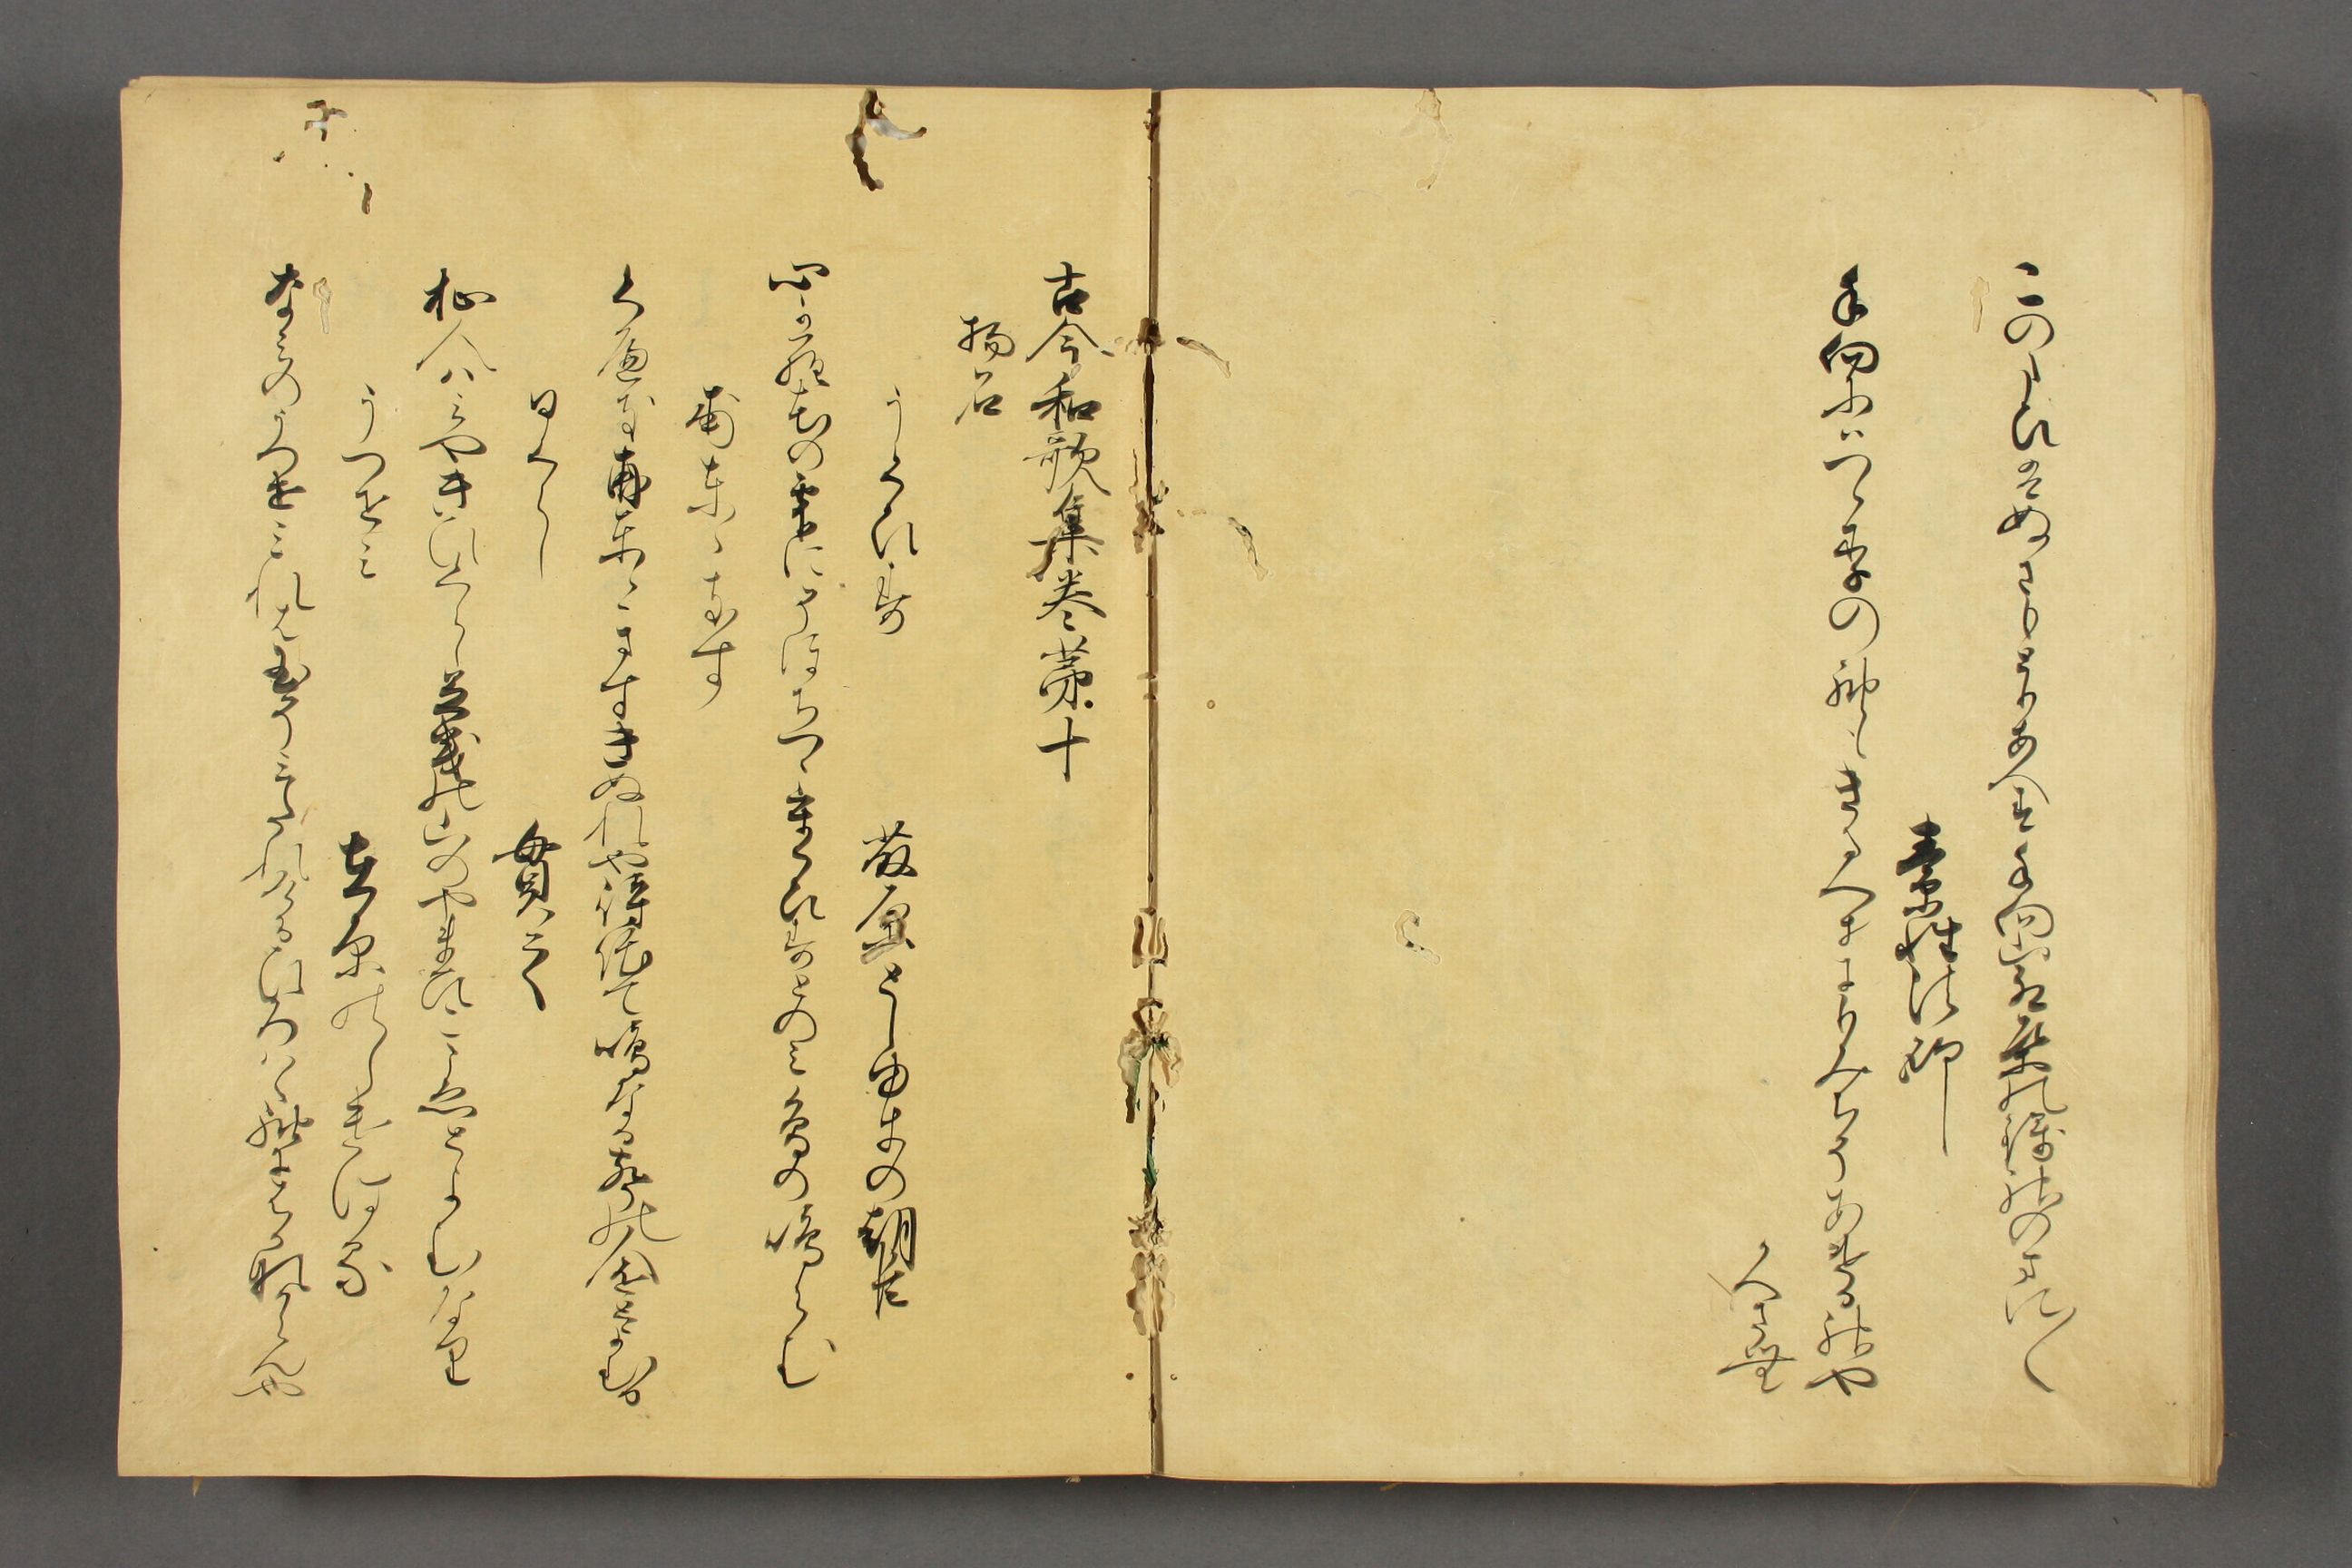 このたひはぬさもとりあへす手向山紅葉の錦神のまに〱
素性法師
手向にはつゝりの袖もきるへきにもみちにあける神やかへさむ
古今和歌集巻第十
物名
うくひす
藤原としゆきの朝臣
心から花の雫にそほちつゝうくひすとのみ鳥の鳴らむ
郭公
くへきほとときすきぬれや待侘て鳴なる声の人をとよむる
日くらし
貫之
杣人は宮木ひくらし足引の山のやまひこよひとよむなり
うつせみ
在原のしけはる
なみのうつせみれは玉そみたれけるひろはゝ袖にはかなからんや